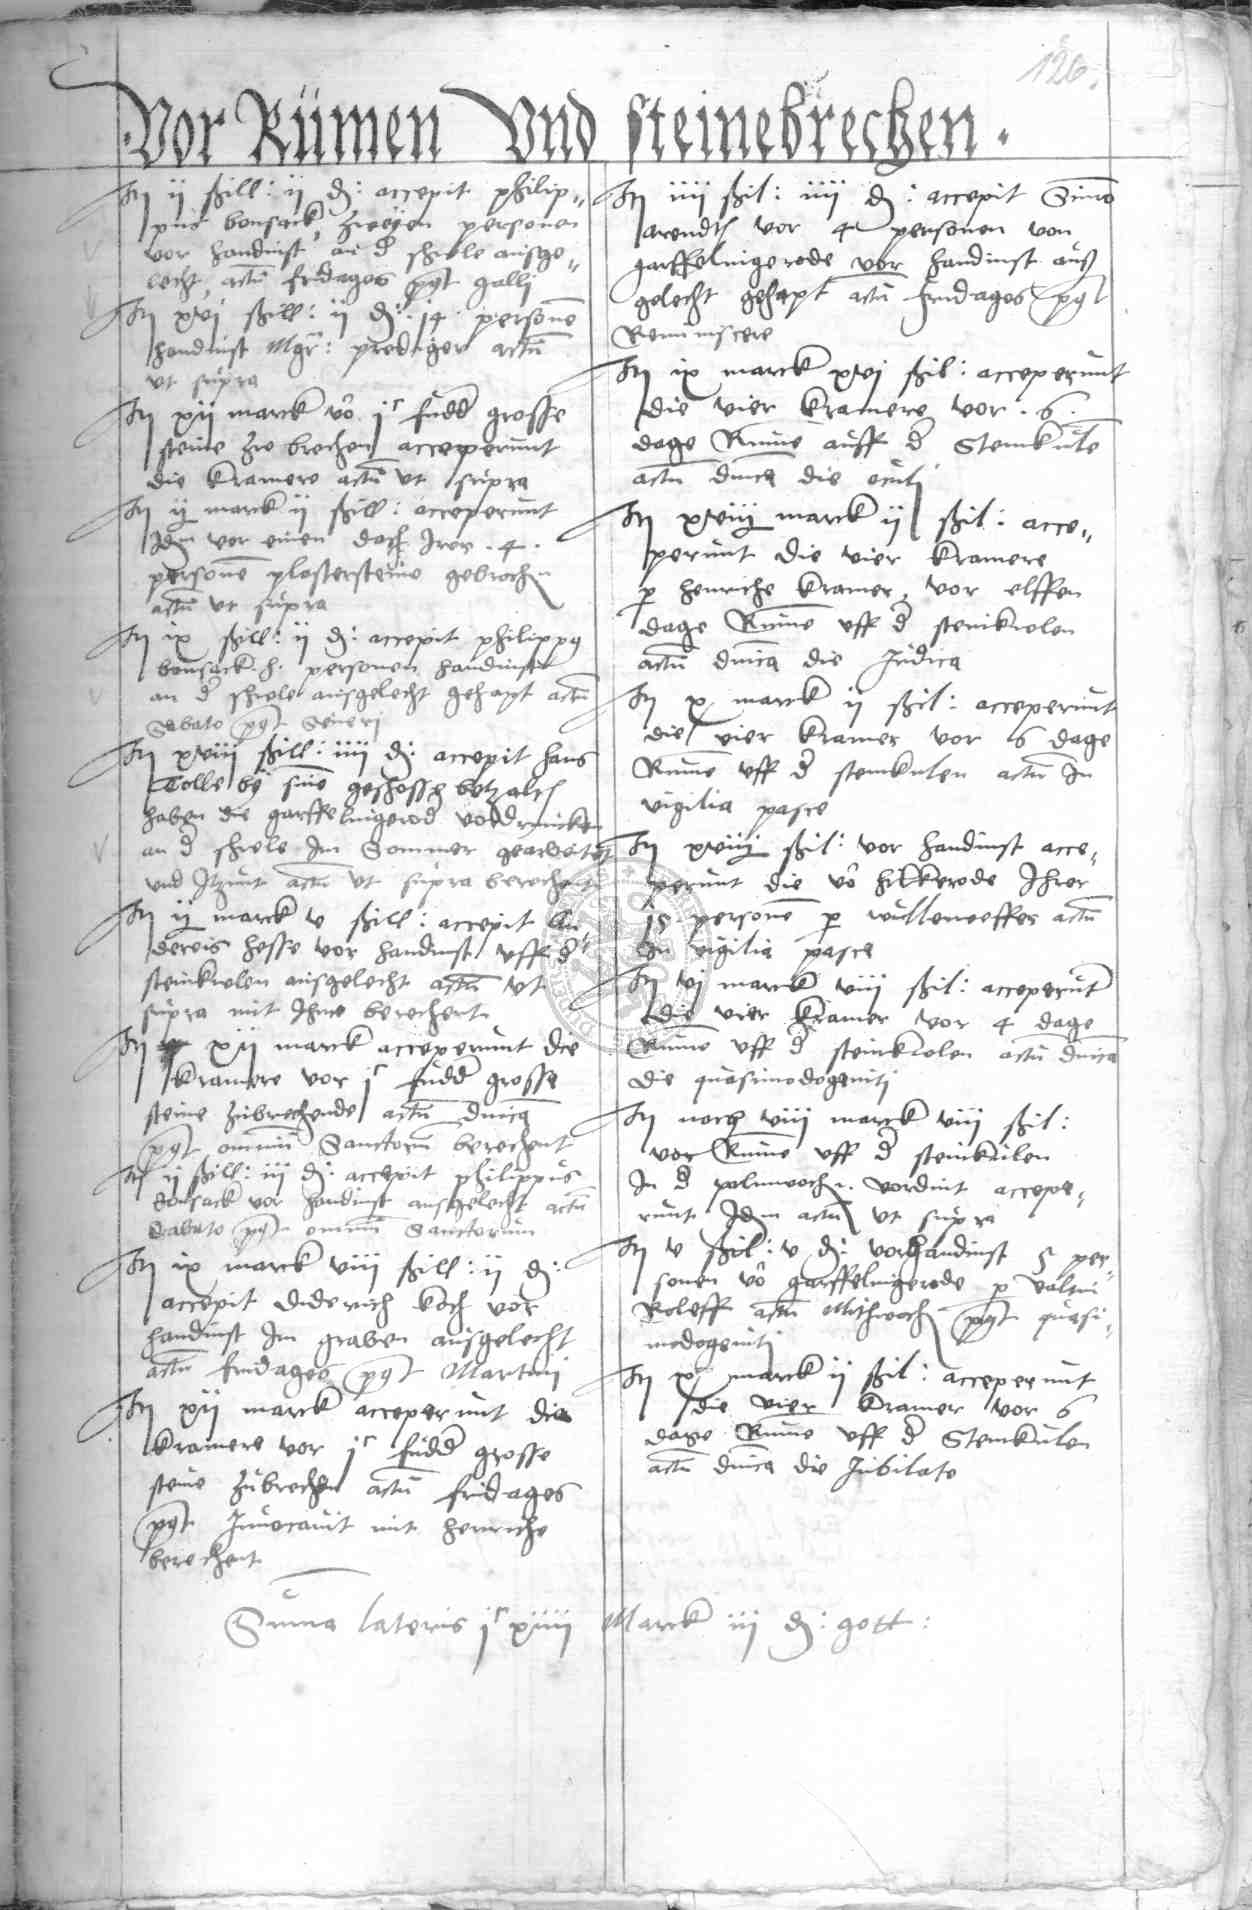 126.
Vor Rümen Vnd steinebrechen.
Itꝫ ij ßill: ij ₰: accepit philip„
pus bonsack, zweyen personen
vor handinst an d̄ schule ausge„
lecht, actū fridages pꝯt galli
Itꝫ xvj ßill: ij ₰: 14 personē
handinst Mgr̄: prediger actū
vt supra
Itꝫ xij marck vō jᶜ fudd̄ grosse
steine zue brechen acceperunt
die kramere actū vt supra
Itꝫ ij marck ij ßill: acceperunt
Idm̄ vor einen dach Irer .4.
personē plastersteine gebrochn̄
actū vt supra
Itꝫ ix ßill: ij ₰: accepit philippꝯ
bonsack personen handinst
an d̄ schule ausgelecht gehapt actū
Sabato pꝯt Seueri
Itꝫ xviij ßill: iiij ₰: accepit hans
Tolle by sine geschossꝫ
haben die garffelnigerod
an d̄ schule Im Sommer gearbeitet
vnd Itzunt actū vt supra berechent
Itꝫ ij marck v ßill: accepit An„
dereis hesse vor handinst vff d̄
steinkulen ausgelecht actū vt
supra mit Ihme berechent
Itꝫ xij marck acceperunt die
kramere vor jᶜ fudd̄ grosse
steine zubrechende actū dnicā
pꝯt omniū Sanctorū berechent
Itꝫ ij ßill: iij ₰: accepit philippus
bonsack vor handinst ausgelecht actū
Sabato pꝯt omniū Sanctorum
Itꝫ ix marck viij ßill: ij ₰:
accepit diderich koch vor
handinst Im graben ausgelecht
actū fridages pꝯt Martini
Itꝫ xij marck acceperunt die
kramere vor jᶜ fudd̄ grosse
steine zubrechen actū fridages
pꝯt Inuocauit mit henriche
berechent
Itꝫ iiij ßil: iiij ₰: accepit Simō
arendts vor 4 personen von
garffelnigerode vor handinst auß
gelecht gehapt actū fridages pꝯt
Reminiscere
Itꝫ ix marck xvj ßil: acceperunt
die vier kramere vor .6.
dage Rume auff d̄ Steinkulē
actū dnicā die oculi
Itꝫ xviij marck ij ßil: acce„
perunt die vier kramere
ꝑ henriche kramer, vor elffen
dage Rume vff d̄ steinkulen
actū dnicā die Judica
Itꝫ x marck ij ßil: acceperunt
die vier kramer vor 6 dage
Rume vff d̄ steinkulen actū In
vigilia pasce
Itꝫ xviiij ßil: vor handinst acce„
perunt die vō hilkerode Ihrer
15 personē ꝑ actū
In vigilia pasce
Itꝫ vj marck viij ßil: acceperūt
die vier kramer vor 4 dage
Rume vff d̄ steinkulen actū dnicā
die quasimodogeniti
Itꝫ noch viij marck viij ßil:
vor Rume vff d̄ steinkulen
In d̄ palmwochn̄ vordint accepe„
runt Idm̄ actū vt supra
Itꝫ v ßil: v ₰: vorhandinst 5 per„
sonen vō garffelnigerode ꝑ valtin
Roleff actū Mithwochn̄ pꝯt quasi„
modogeniti
Itꝫ x marck ij ßil: acceperunt
die vier kramer vor 6
dage Rume vff d̄ Steinkulen
actū dnicā die Jubilate
Sūma lateris jᶜ xiiij Marck iij ₰: gott: